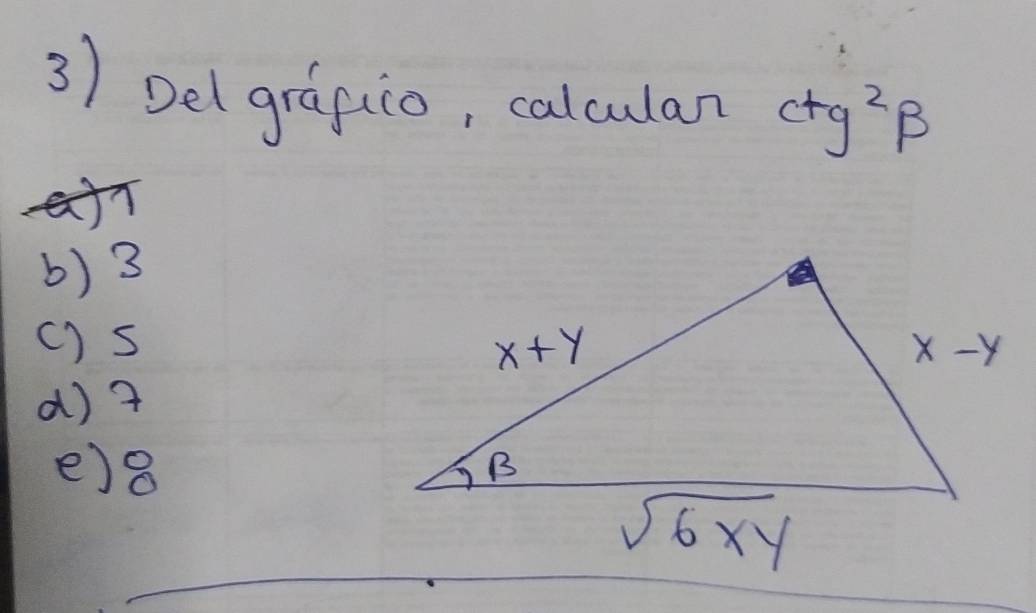 3) Del gráfico, calcular ctg²β
a) 1
b) 3
c) 5
d) 7
e) 8
x+y
x-y
β
√6xy